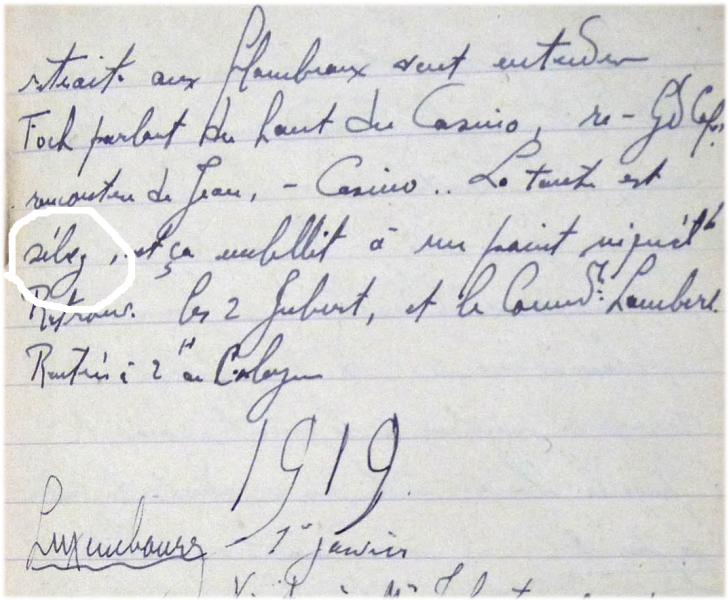 retraite aux flambeaux vont entendre
Foch parlant du haut du Casino, re-Gd Café,
rencontre de Jean, - Casino.. La tante est
, et ça embellit à un point
Retrouv. les 2 Jubert, et le Commdt Lambert.
Rentrés à 2 H au
1919
Luxembourg - 1er janvier